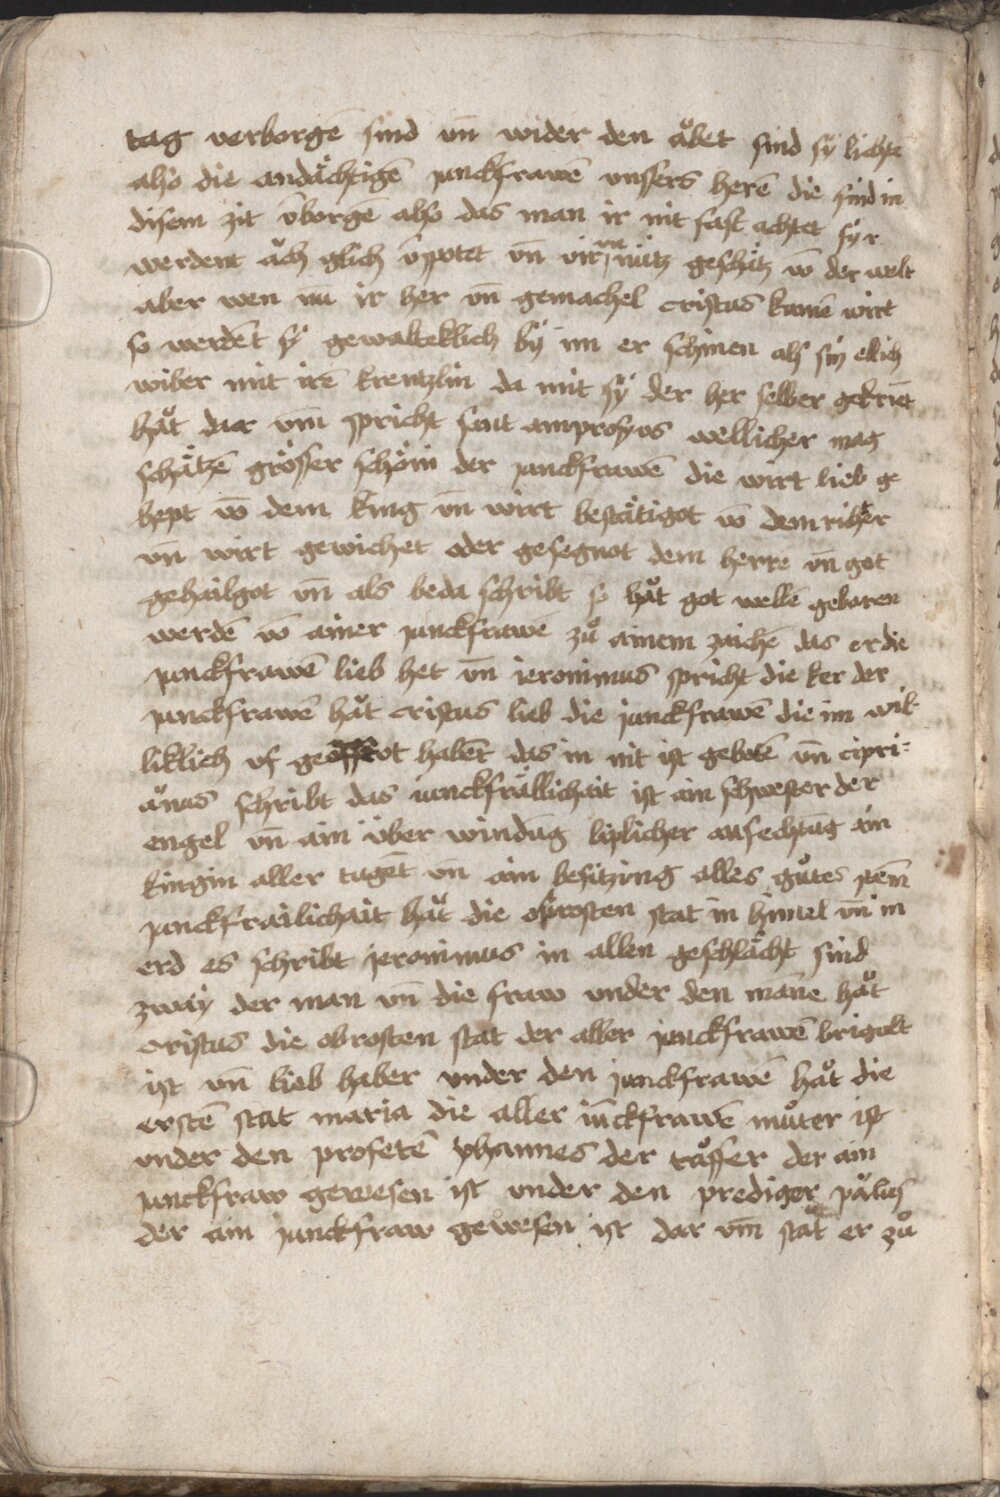 tag verborgē sind vn̄ wider den aͤbet sind sÿ lichtē
also die andächtigē junckfrawē vnssers herē die sind in
disem zit v̄borgē also das man ir nit fast achtet sÿ
werdent äch glich v̄spotet vn̄ vnnütz geschätz vō der welt
aber wen nu ir her vn̄ gemachel cristus kumē wirt
so werdēt sÿ gewalteklich bÿ im er schinen als sin elich
wiber mit irē krentzlin da mit sÿ der her selber gekrōt
hät dar vm̄ spricht sant amprosyos wellicher mag
schätzē grösser schöni der junckfrawē die wirt lieb ge
hept vō dem king vn̄ wirt bestätigot vō dem richter
vn̄ wirt gewichet oder gesegnot dem herre vn̄ got
gehailgot vn̄ als beda schribt so hät got wellē geboren
werdē vō ainer junckfrawē zů ainem zaichē das er die
junckfrawē lieb het vn̄ jeronimus spricht die ker der
junckfrawē hät cristus lieb die junckfrawē die im wil-
liklich vf geoffrot habēt das in nit ist gebotē vn̄ cipri-
änus schribt das junckfrällichait ist ain schwester der
engel vn̄ ain über windūg liplicher anfechtūg ain
kingin aller tugēt vn̄ ain besitzung alles gůtes itēm
junckfrailichait hät die obrosten stat in himel vn̄ in
erd es schribt jeronimus in allen geschlächt sind
zwaÿ der man vn̄ die fraw under den mäne hät
cristus die obrosten stat der aller junckfrawē brigolt
ist vn̄ lieb haber under den junckfrawē hät die
erstē stat maria die aller jūckfrawē můter ist
under den profetē yohannes der töffer der ain
junckfraw gewesen ist under den prediger päulus
der ain junckfraw gewesen ist dar vm̄ stät er zů